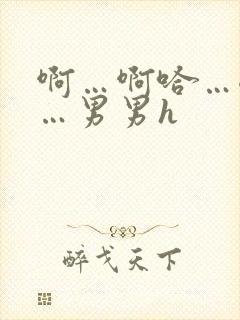 啊…啊哈…
…男男h
醉戈天下